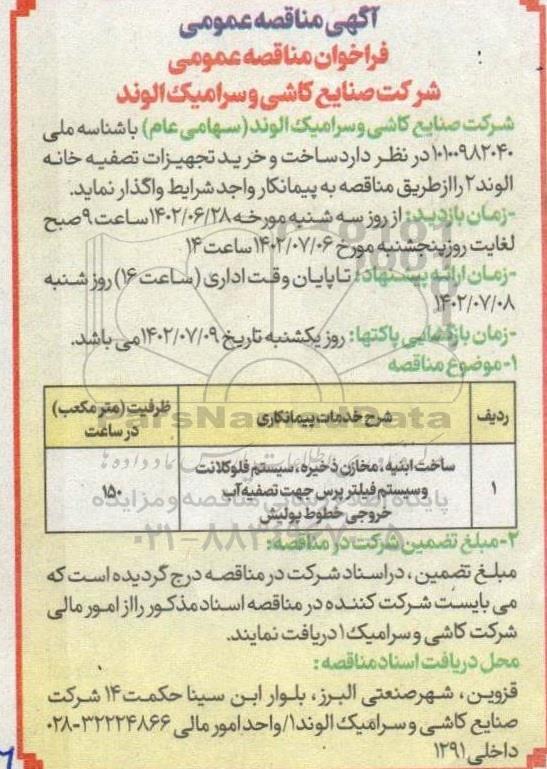 آگهی مناقصه عمومی
فراخوان مناقصه عمومی
شرکت صنایع کاشی و سرامیک الوند
شرکت صنایع کاشی و سرامیک الوند (سهامی عام) با شناسه ملی
۱۰۱۰۰۹۸۲۰۴۰ در نظر دارد ساخت و خرید تجهیزات تصفیه خانه
الوند ۲ را از طریق مناقصه به پیمانکار واجد شرایط واگذار نماید.
-زمان بازدید: از روز سه شنبه مورخه ۱۴۰۲/۰۶/۲۸ ساعت ۹ صبح
لغایت روز پنجشنبه مورخ ۱۴۰۲/۰۷/۰۶ ساعت ۱۴
-زمان ارائه پیشنهاد: تا پایان وقت اداری (ساعت ۱۶) روز شنبه
۱۴۰۲/۰۷/۰۸
-زمان بازگشایی پاکتها: روز یکشنبه تاریخ ۱۴۰۲/۰۷/۰۹ می باشد.
۱-موضوع مناقصه
ردیف شرح خدمات پیمانکاری ظرفیت (متر مکعب) در ساعت
۱ ساخت ابنیه، مخازن ذخیره، سیستم فلوکلانت
و سیستم فیلتر پرس جهت تصفیه آب
خروجی خطوط پولیش ۱۵۰
ParsNamadData
پایگاه اطلاع رسانی مناقصه و مزایده
۲-مبلغ تضمین شرکت در مناقصه:
مبلغ تضمین، در اسناد شرکت در مناقصه درج گردیده است که
می بایست شرکت کننده در مناقصه اسناد مذکور را از امور مالی
شرکت کاشی و سرامیک ۱ دریافت نمایند.
محل دریافت اسناد مناقصه:
قزوین، شهر صنعتی البرز، بلوار ابن سینا حکمت ۱۴ شرکت
صنایع کاشی و سرامیک الوند ۱/واحد امور مالی ۳۲۲۲۴۸۶۶-۰۲۸
داخلی ۱۲۹۱